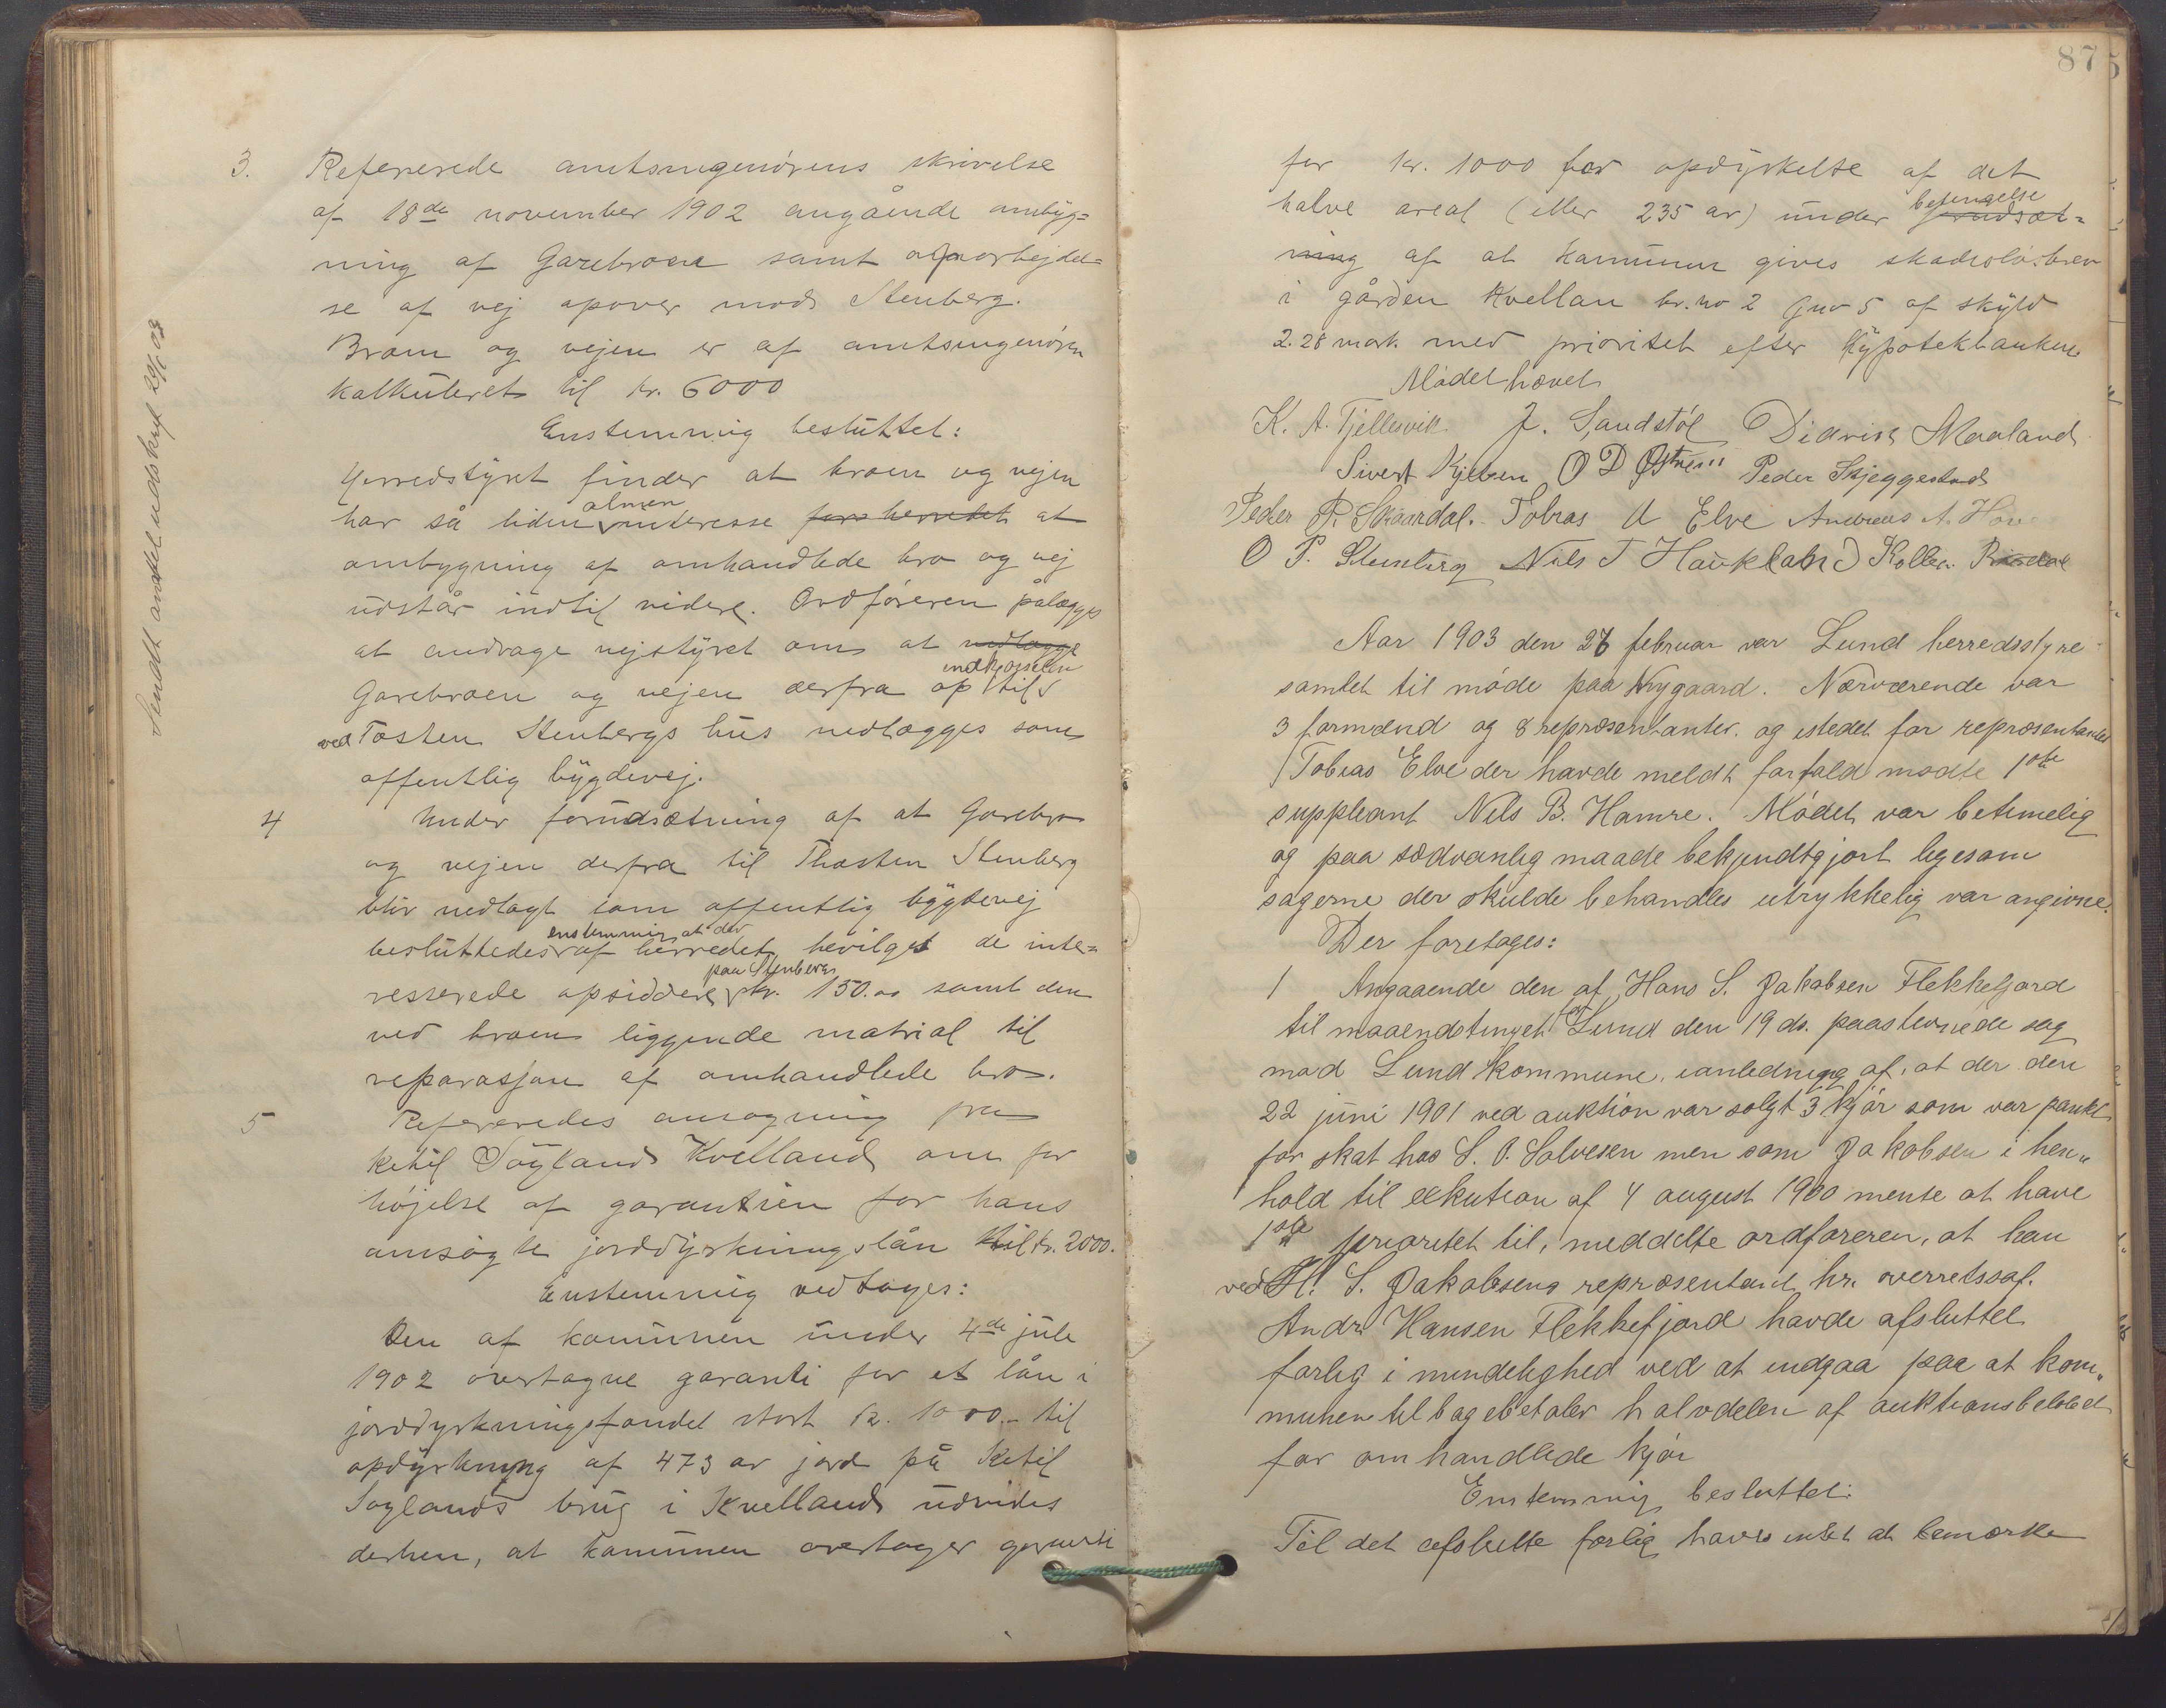 3. Refererede amtsingeniørens skrivelse
af 18de november 1902 angående ombyg=
ning af Garebroen samt oparbejdel=
se af vej opover mod Stenberg.
Broen og vejen er af amtsingeniøren
kalkuleret til kr. 6000
Enstemmig besluttet:
Herredstyret finder at broen og vejen
har så liden almen interesse for herredet at
ombygning af omhandlede bro og vej
udstår indtil videre. Ordføreren pålægges
at andrage vejstyret om at nedlægge
Garebroen og vejen derfra op til indkjørselen
ved Tosten Stenbergs hus nedlægges som
offentlig bygdevej.
4 Under forudsætning af at Garebro
og vejen derfra til Thosten Stenberg
blir nedlagt som offentlig bygdevej
besluttedes enstemmig at der af herredet bevilges de inte=
resserede opsiddere paa Stenberg kr. 150.00 samt den
ved broen liggende matrial til
reparasjon af omhandlede bro.
5 Refereredes ansøgning fra
Ketil Søyland Kvelland om for
højelse af garantien for hans
ansøgte jorddyrkningslån til kr. 2000.
Enstemmig vedtages:
Den af kommunen under 4de juli
1902 overtagne garanti for et lån i
jorddyrkningsfondet stort kr. 1000.- til
opdyrkning af 473 ar jord på Ketil
Søylands brug i Kvelland udvides
derhen, at kommunen overtager garanti
Sendt andtel udskrift 29/1 03
87
for kr. 1000 for opdyrkelse af det
halve areal (eller 235 ar) under betingelse forudsæt=
ning af at kommunen gives skadesløsbrev
i gården Kvellan br.no 2 Gno 5 af skyld
2.28 mark med prioritet efter Hypotekbanken.
Mødet hævet
K. A. Tjellesvik J. Sandstøl Didrik Maaland
Sivert Kjelsen O D Østrem Peder Skjeggestad
Peder P. Skaardal. Tobias A Elve Andreas A. Hove
O P. Stenberg Nils T Haukland
Aar 1903 den 26 februar var Lund herredsstyre
samlet til møde paa Nygaard. Nærværende var
3 formænd og 8 repræsentanter. og istedet for repræsentanten
Tobias Elve der havde meldt forfald mødte 1ste
suppleant Nils B. Hamre. Mødet var betimelig
og paa sædvanlig maade bekjendtgjort ligesom
sagerne der skulde behandles utrykkelig var angivne.
Der foretoges:
1 Angaaende den af Hans S. Jakobsen Flekkefjord
til maaendstinget for Lund den 19 ds. paastevnede sag
mod Lund kommune, ianledning af, at der den
22 juni 1901 ved auktion var solgt 3 kjør som var pantet
for skat hos S. O. Salvesen men som Jakobsen i hen„
hold til exkution af 4 august 1900 mente at have
1ste prioritet til, meddelte ordføreren, at han
ved H. S. Jakobsens repræsentant hr. overretssaf.
Andr. Hansen Flekkefjord havde afsluttet
forlig i mindelighed ved at indgaa paa at kom„
munen tilbagebetaler halvdelen af auktionsbeløbet
for omhandlede kjør
Enstemmig besluttet:
Til det afsluttte forlig haves intet at bemærke